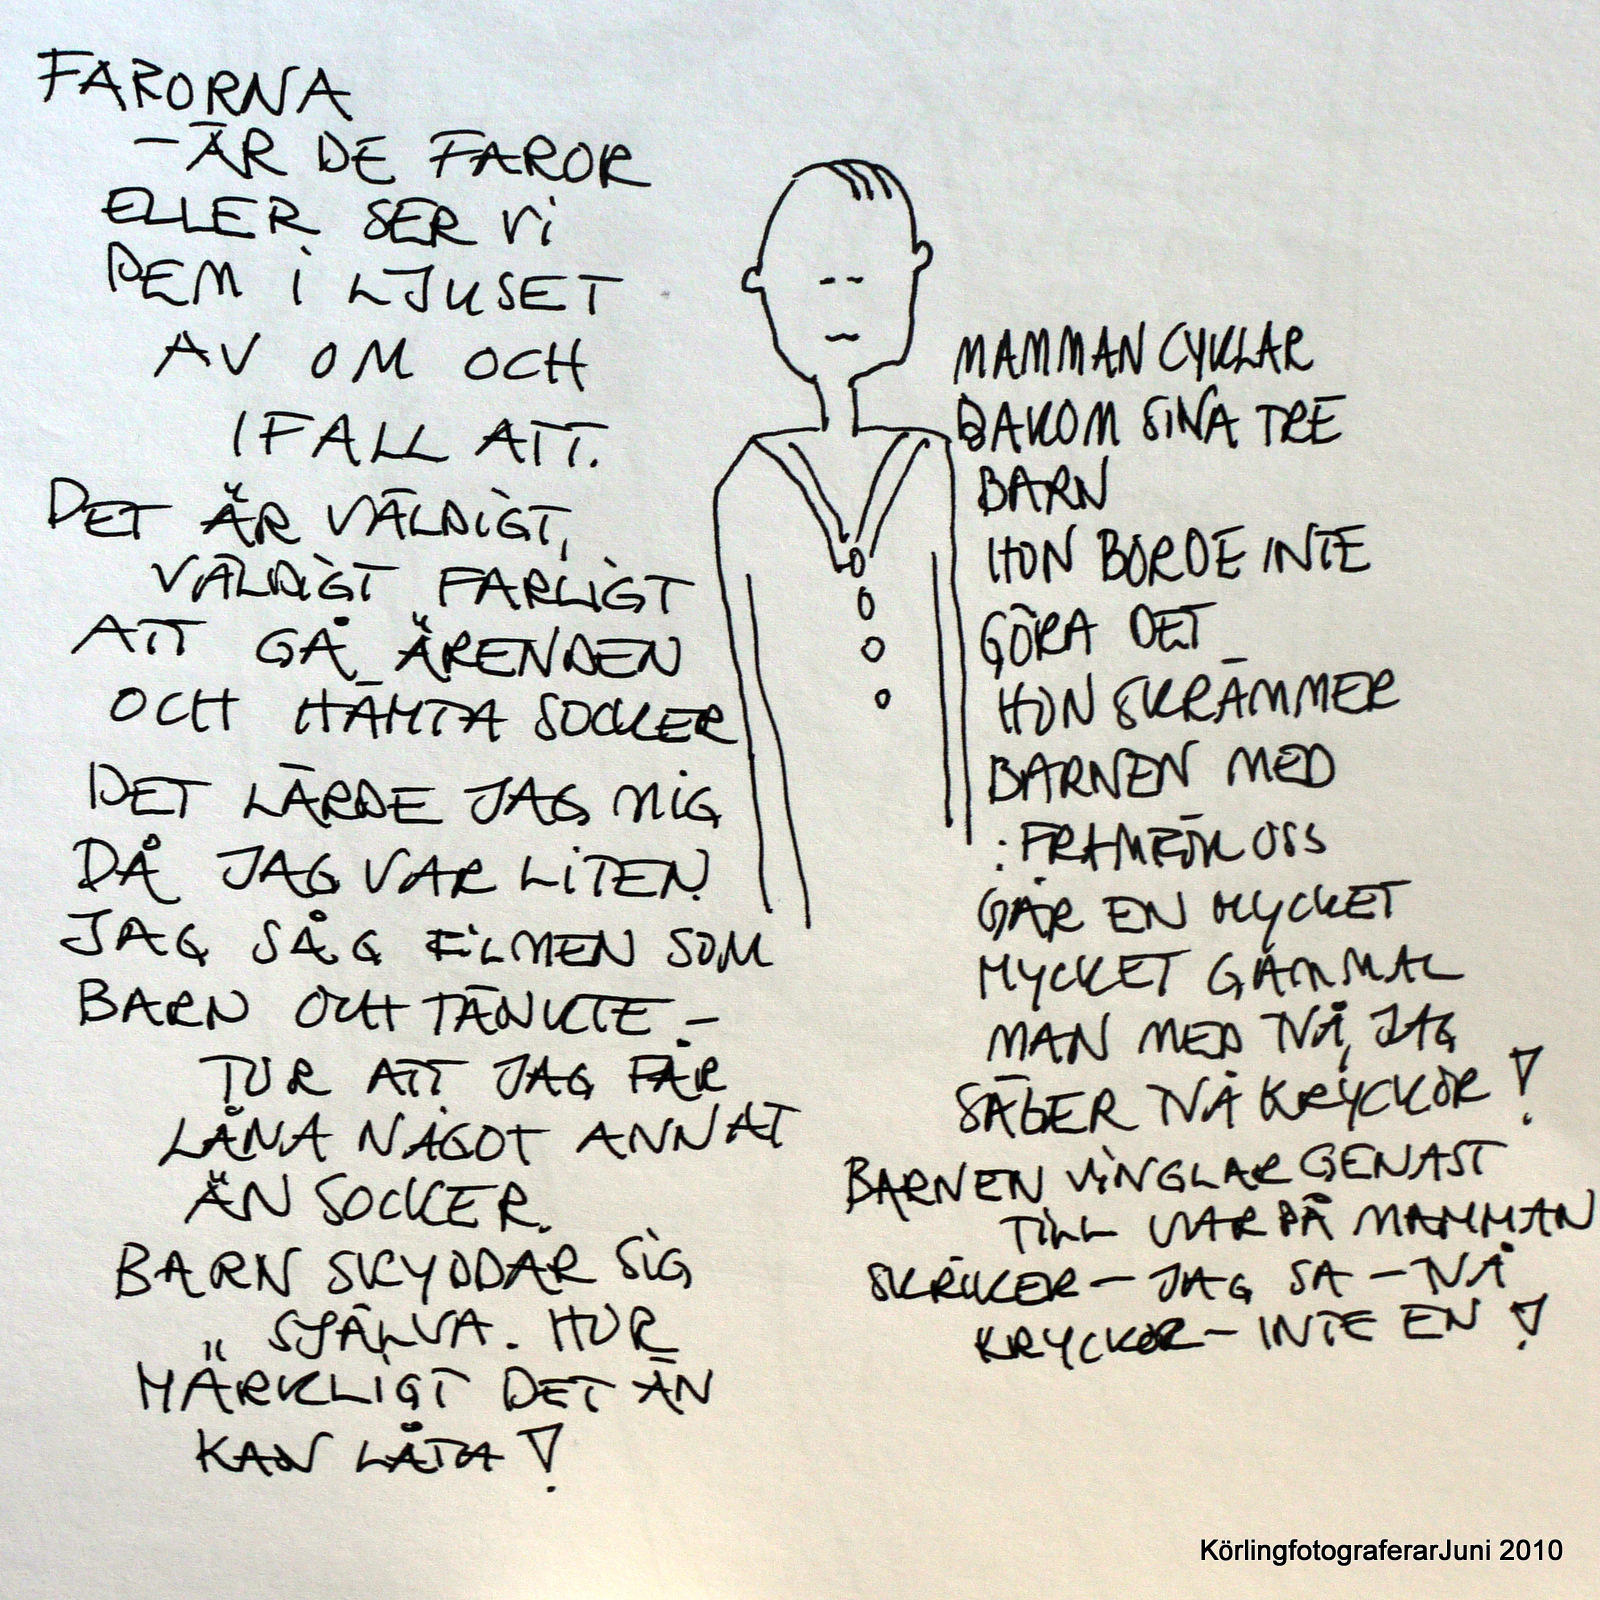 FARORNA
– ÄR DE FAROR
ELLER SER Vi
DEM i LJUSET
AV OM OCH
IFALL ATT.
DET ÄR VÄLDiGT,
VÄLDiGT FARLiGT
ATT GÅ ÄRENDEN
OCH HÄMTA SOCKER
DET LÄRDE JAG MiG
DÅ JAG VAR LiTEN.
JAG SÅG FiLMEN SOM
BARN OCH TÄNKTE –
TUR ATT JAG FÅR
LÅNA NÅGOT ANNAT
ÄN SOCKER.
BARN SKYDDAR SiG
SJÄLVA. HUR
MÄRKLiGT DET ÄN
KAN LÅTA!
MAMMAN CYKLAR
BAKOM SiNA TRE
BARN
HON BORDE INTE
GÖRA DET
HON SKRÄMMER
BARNEN MED
: FRAMFÖR OSS
GÅR EN MYCKET
MYCKET GAMMAL
MAN MED TVÅ, JAG
SÄGER TVÅ KRYCKOR!
BARNEN ViNGLAR GENAST
TiLL VAR PÅ MAMMAN
SKRiKER – JAG SA – TVÅ
KRYCKOR – INTE EN!
KörlingfotograferarJuni 2010